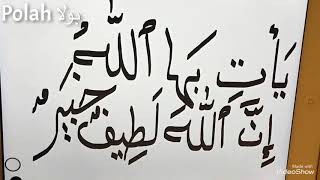 Polah بولا
يَأْتِ بِهَا ٱللَّهُ
إِنَّ ٱللَّهَ لَطِيفٌ خَبِيرٌ
Made with
VideoShow